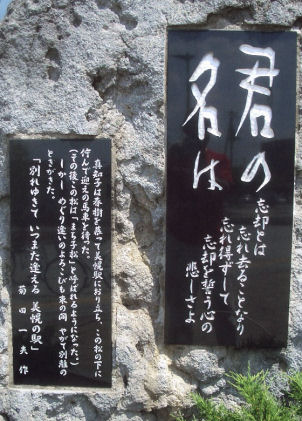 君の
名は
忘却とは
忘れ去ることなり
忘れ得ずして
忘却を誓う心の
悲しさよ
真知子は春樹を慕って美幌駅におり立ち、この松の下に
佇んで迎えの馬車を待った。
(その後この松は「まち子松」と呼ばれるようになった。)
しかし めぐり逢いのよろこびも束の間 やがて別離の
ときがきた。
「別れゆきて いつまた逢える 美幌の駅」
菊田一夫 作